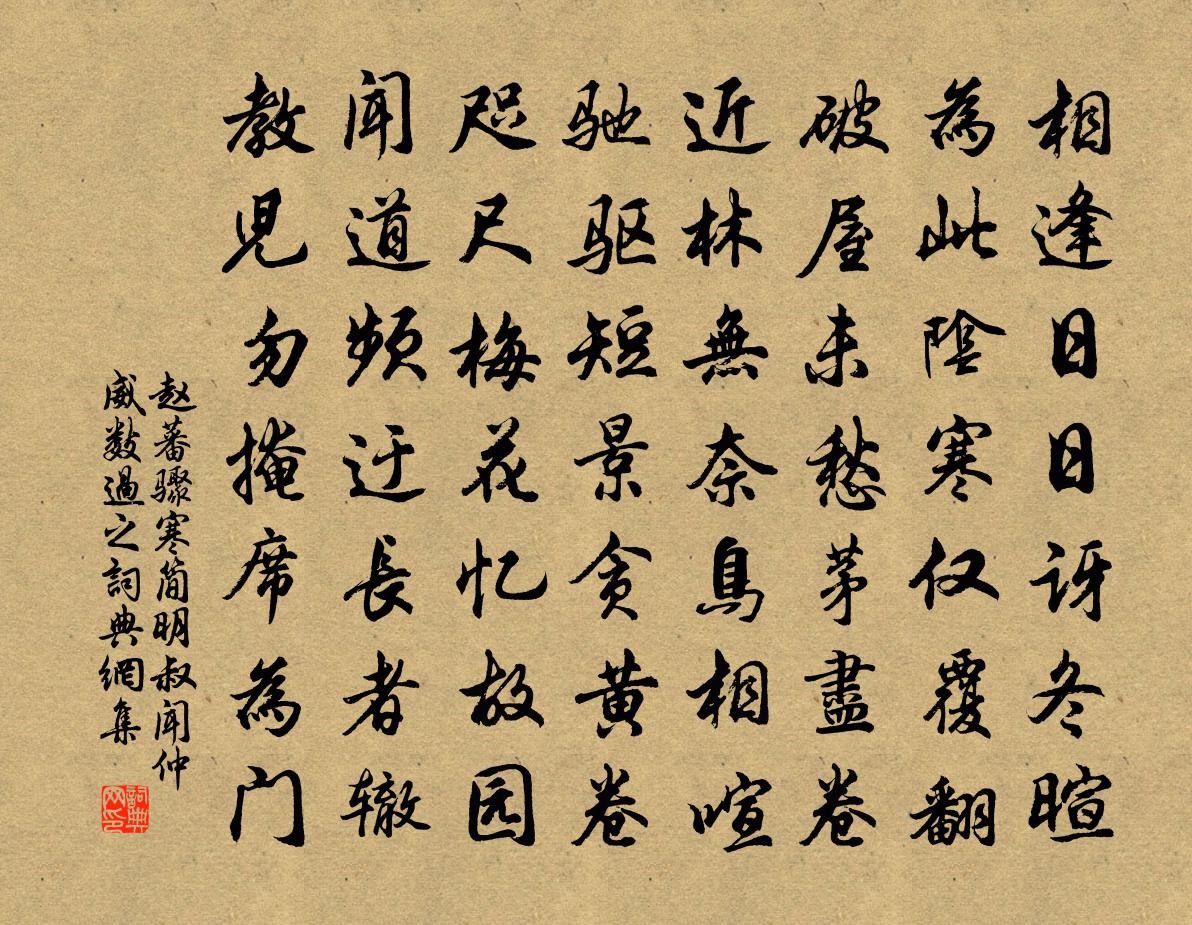 相逢日日讶冬暄
為此陰寒仅覆翻
破屋未愁茅盡卷
近林無奈鳥相喧
驰驱短景贪黄卷
咫尺梅花忆故园
闻道频迂長者辙
教児勿掩席為门
赵蕃骤寒简明叔闻仲
威数過之詞典網集
詞典网印